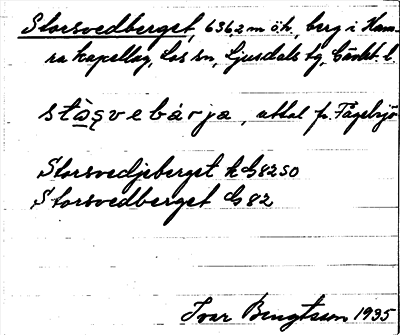 Storsvedberget, 636,2 m ö.h., berg i Ham-
ra kapellag, Los sn, Ljusdals tg, Gävleb. l.
stòsvebárja, uttal fr. Fågelsjö
Storsvedjeberget k G8250
Storsvedberget G 82
Ivar Bengtsson 1935